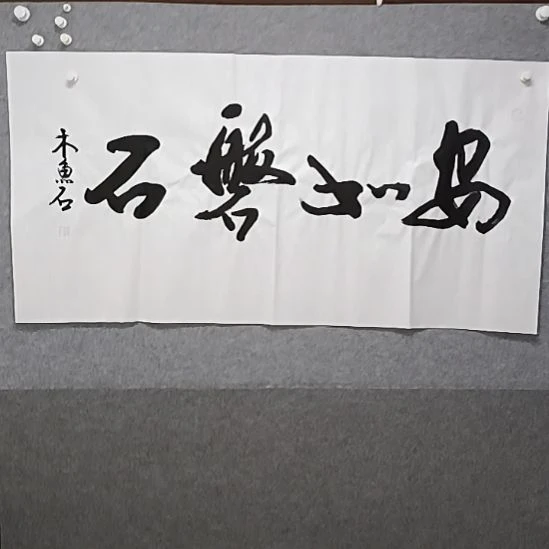 安如磐石
木魚石